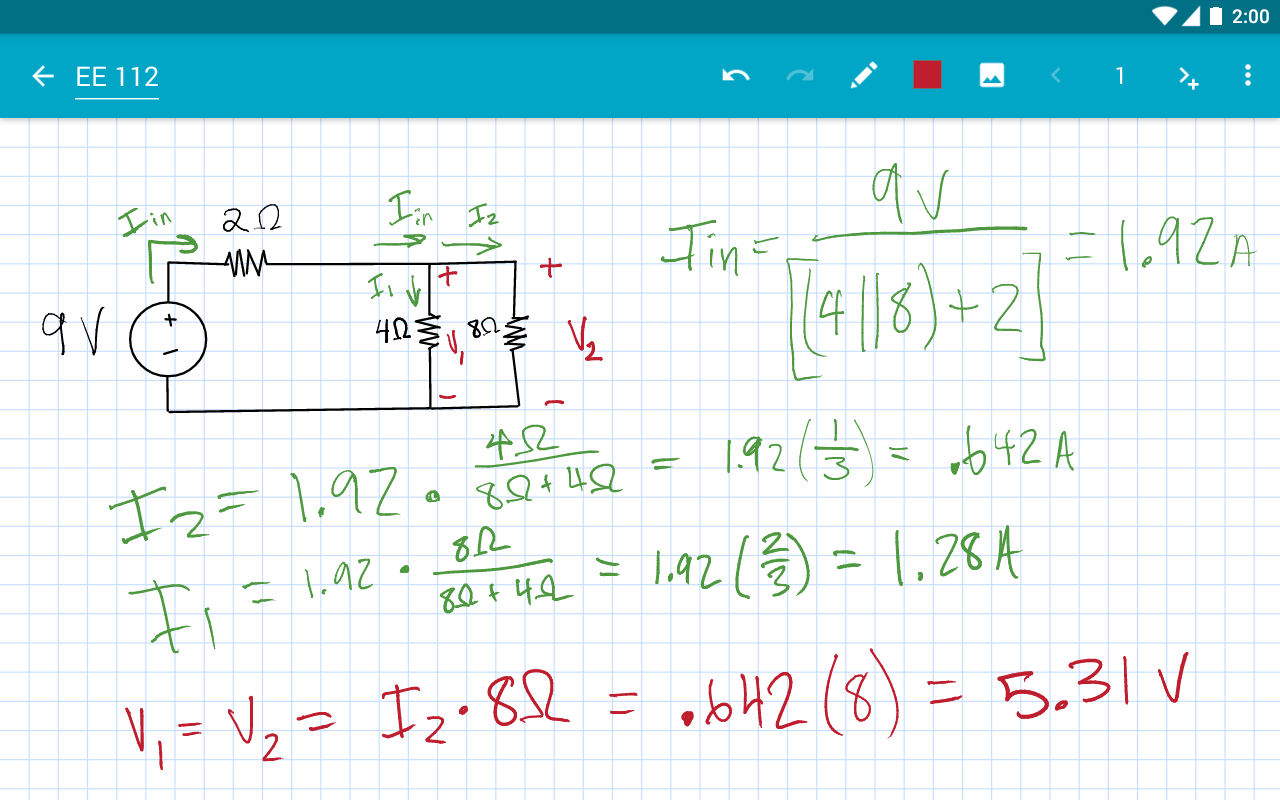 2:00
EE 112
1
Iin
2Ω
Iin
I2
9V
+
-
I1
4Ω
+
V1
-
8Ω
+
V2
-
Iin = 9V / [(4||8)+2] = 1.92A
I2 = 1.92 · 4Ω / 8Ω + 4Ω = 1.92(1/3) = .642A
I1 = 1.92 · 8Ω / 8Ω + 4Ω = 1.92(2/3) = 1.28A
V1 = V2 = I2 · 8Ω = .642(8) = 5.31V